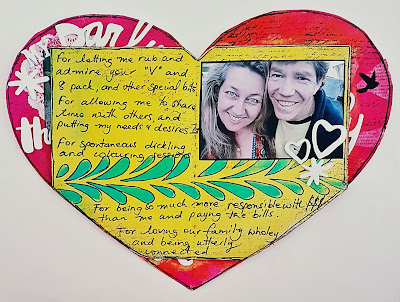 For letting me rub and
admire your "V" and
8 pack, and other special bits
For allowing me to share
time with others, and
putting my needs & desires
For spontaneous
and colouring
For being so much more responsible with $$$
than me and paying the bills.
For loving our family wholey
and being utterly
connected